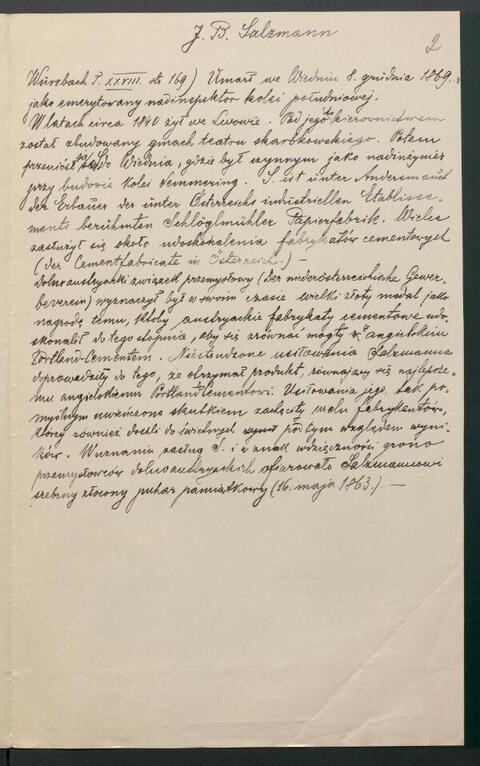 J. B. Salzmann
2
Wurzbach T. XXVIII. str 169) Umarł we Wiedniu 8. grudnia 1869.
jako emerytowany nadinspektor kolei południowej.
W latach circa 1840 żył we Lwowie. Pod jego kierownictwem
został zbudowany gmach teatru skarbkowskiego. Potem
przeniósł się do Wiednia, gdzie był czynnym jako nadinżynier
przy budowie kolei Semmering. S. ist unter Anderem auch
der Erbauer der unter Österreichs industriellen Etablisse-
ments berühmten Schlöglmühler Papierfabrik. Wielce
zasłużył się około udoskonalenia fabrykatów cementowych
(der Cementfabricate in Österreich.) —
Dolnoaustryacki związek przemysłowy (Der niederösterreichische Gewer-
beverein) wyznaczył był w swoim czasie wielki złoty medal jako
nagrodę temu, któby austryackie fabrykaty cementowe udo-
skonalił do tego stopnia, aby się zrównać mogły z angielskim
Portland-Cementem. Niestrudzone usiłowania Salzmanna
doprowadziły do tego, że otrzymał produkt, równający się najlepsze-
mu angielskiemu Portland-Cementowi. Usiłowania jego, tak po-
myślnym uwieńczone skutkiem zachęciły wielu fabrykantów,
którzy również doszli do świetnych pod tym względem wyni-
ków. W uznaniu zasług S. i w znak wdzięczności grono
przemysłowców dolnoaustryackich ofiarowało Salzmannowi
srebrny złocony puhar pamiątkowy (16. maja 1863.). —